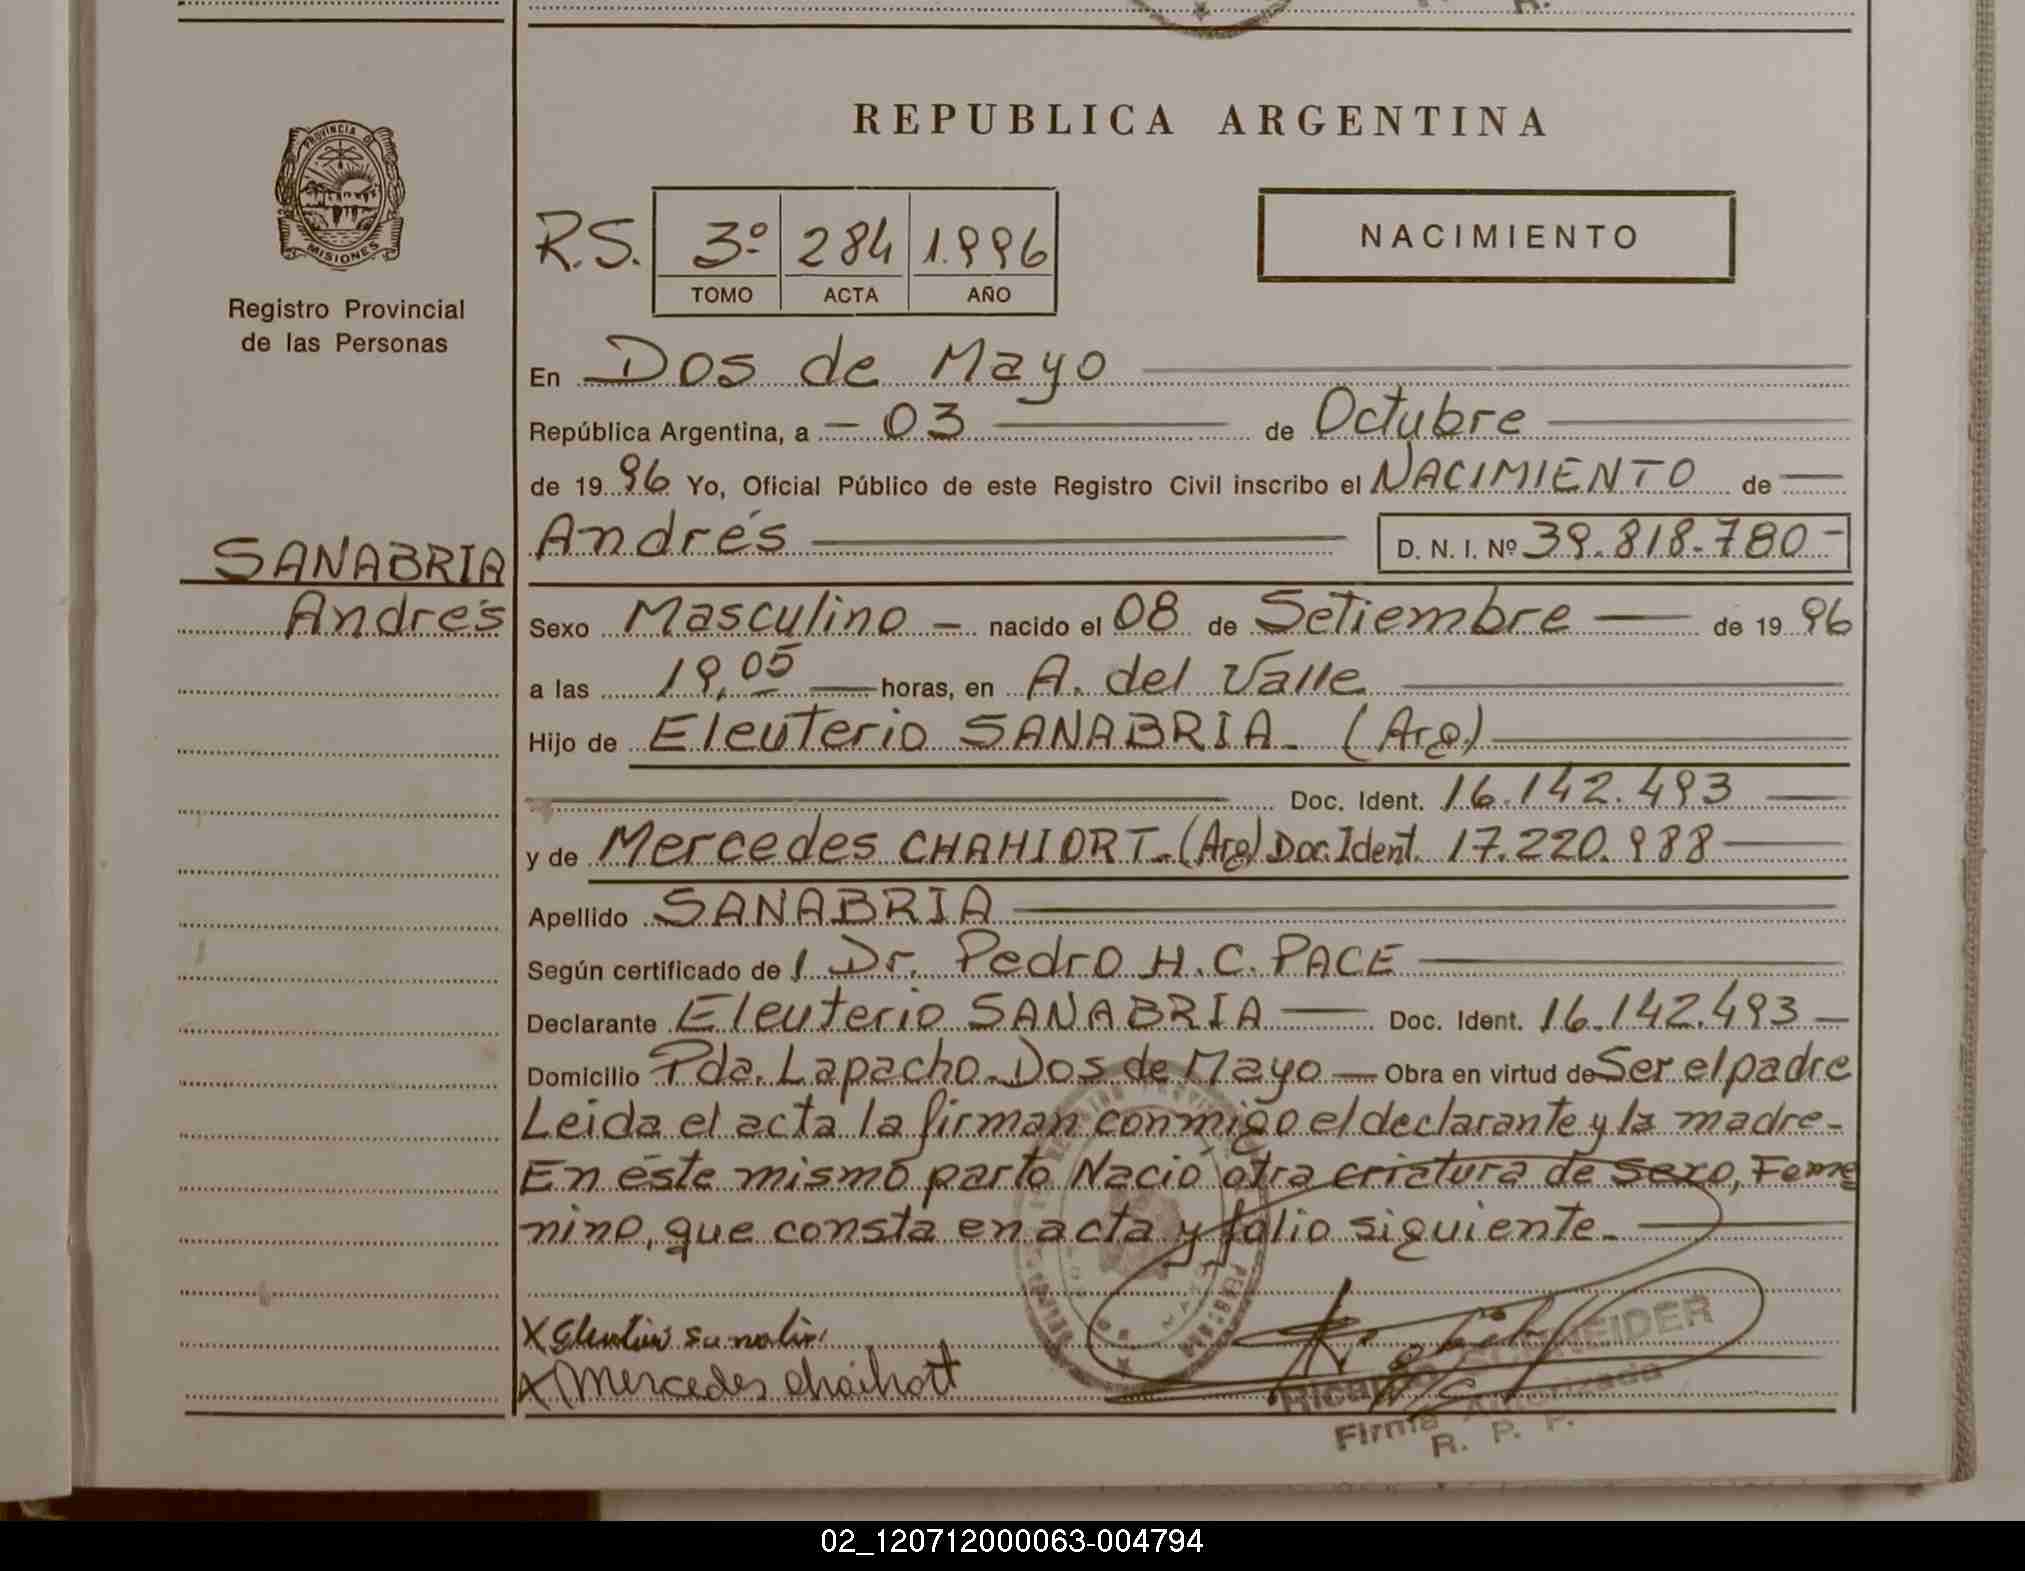 REPUBLICA ARGENTINA
PROVINCIA DE
MISIONES
Registro Provincial
de las Personas
R.S. 3º 284 1.996
TOMO ACTA AÑO
NACIMIENTO
En Dos de Mayo
República Argentina, a - 03 de Octubre
de 19 96 Yo, Oficial Público de este Registro Civil inscribo el NACIMIENTO de
Andrés D. N. I. Nº 39.818.780-
SANABRIA
Andrés
Sexo Masculino - nacido el 08 de Setiembre de 19 96
a las 19,05 horas, en A. del Valle
Hijo de Eleuterio SANABRIA - (Arg.)
Doc. Ident. 16.142.493
y de Mercedes CHAHIORT - (Arg) Doc. Ident. 17.220.988
Apellido SANABRIA
Según certificado de l Dr. Pedro H. C. PACE
Declarante Eleuterio SANABRIA Doc. Ident. 16.142.493
Domicilio Pda. Lapacho - Dos de Mayo Obra en virtud de Ser el padre
Leida el acta la firman conmigo el declarante y la madre -
En éste mismo parto Nació otra criatura de sexo, Feme
nino, que consta en acta y folio siguiente -
X Eleuterio Sanabria
X Mercedes Chaihort
SCHNEIDER
Firma Autorizada
R. P. P.
02_120712000063-004794